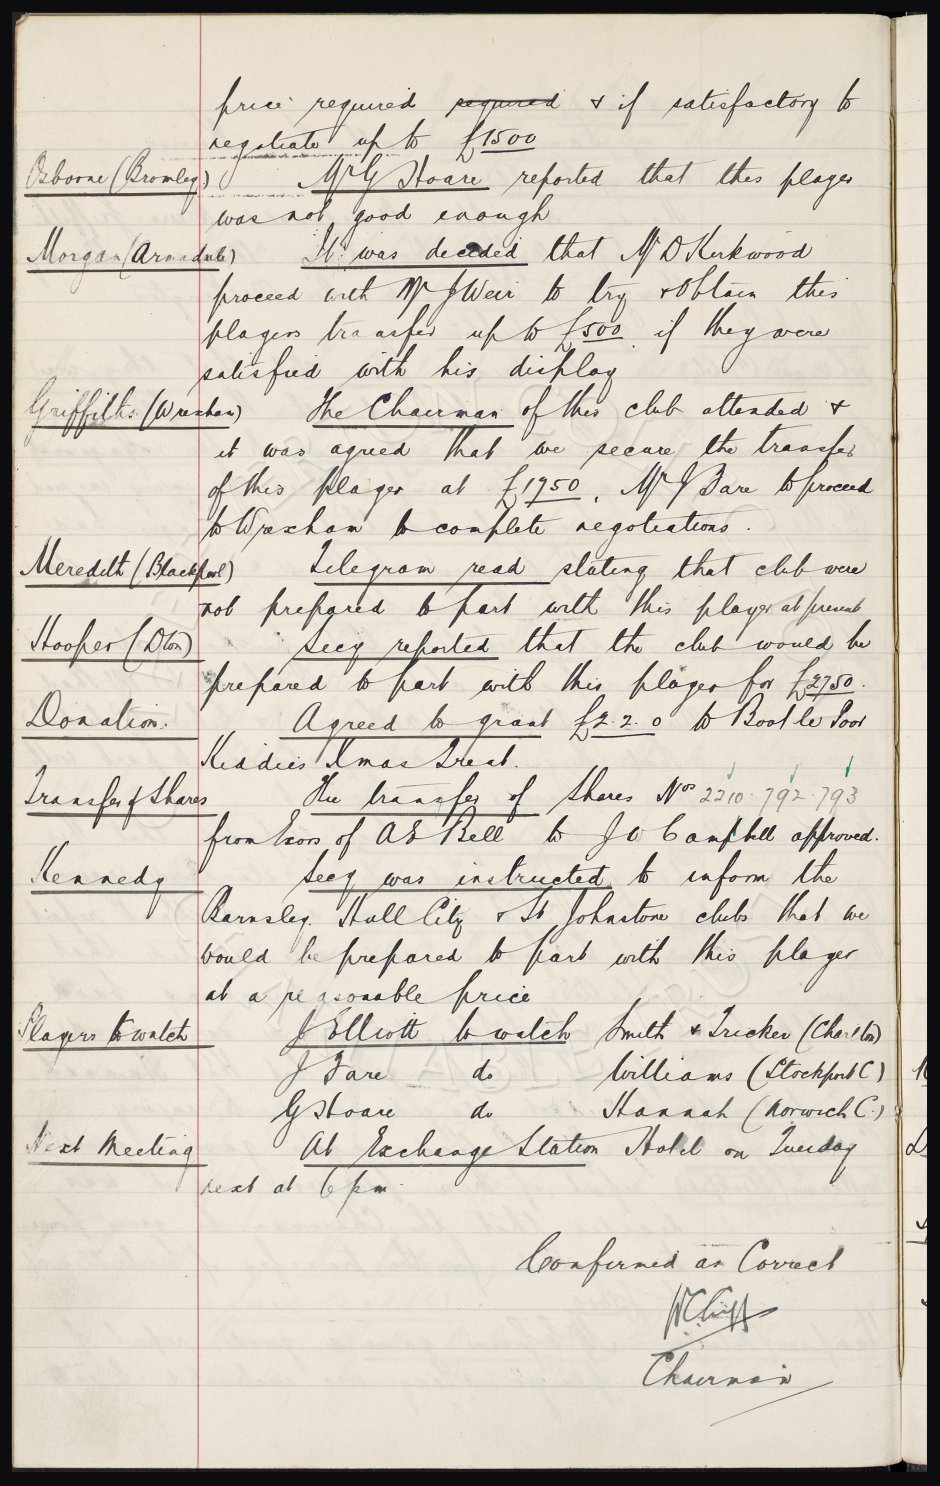 price required required & if satisfactory to
negotiate up to £1500
Osborne (Bromley) Mr G Hoare reported that this player
was not good enough
Morgan (Armadale) It was decided that Mr D Kirkwood
proceed with Mr J Weir to try & obtain this
players transfer up to £500 if they were
satisfied with his display
Griffiths (Wrexham) The Chairman of this club attended &
it was agreed that we secure the transfer
of this player at £1750. Mr J Fare to proceed
to Wrexham to complete negotiations.
Meredith (Blackpool) Telegram read stating that club were
not prepared to part with this player at present
Hooper (Dton) Secy reported that the club would be
prepared to part with this player for £2750.
Donation. Agreed to grant £2. 2. 0 to Bootle Poor
Kiddies Xmas Treat.
Transfer of Shares The transfer of Shares Nos 2210. 792. 793
from Exors of A E Bell to J W Campbell approved.
Kennedy Secy was instructed to inform the
Barnsley. Hull City & St Johnstone clubs that we
would be prepared to part with this player
at a reasonable price
Players to watch J Elliott to watch Smith & Tricker (Charlton)
J Fare do Williams (Stockport C)
G Hoare do Hannah (Norwich C.)
Next Meeting At Exchange Station Hotel on Tuesday
next at 6 pm.
Confirmed as Correct
W C Cuff
Chairman